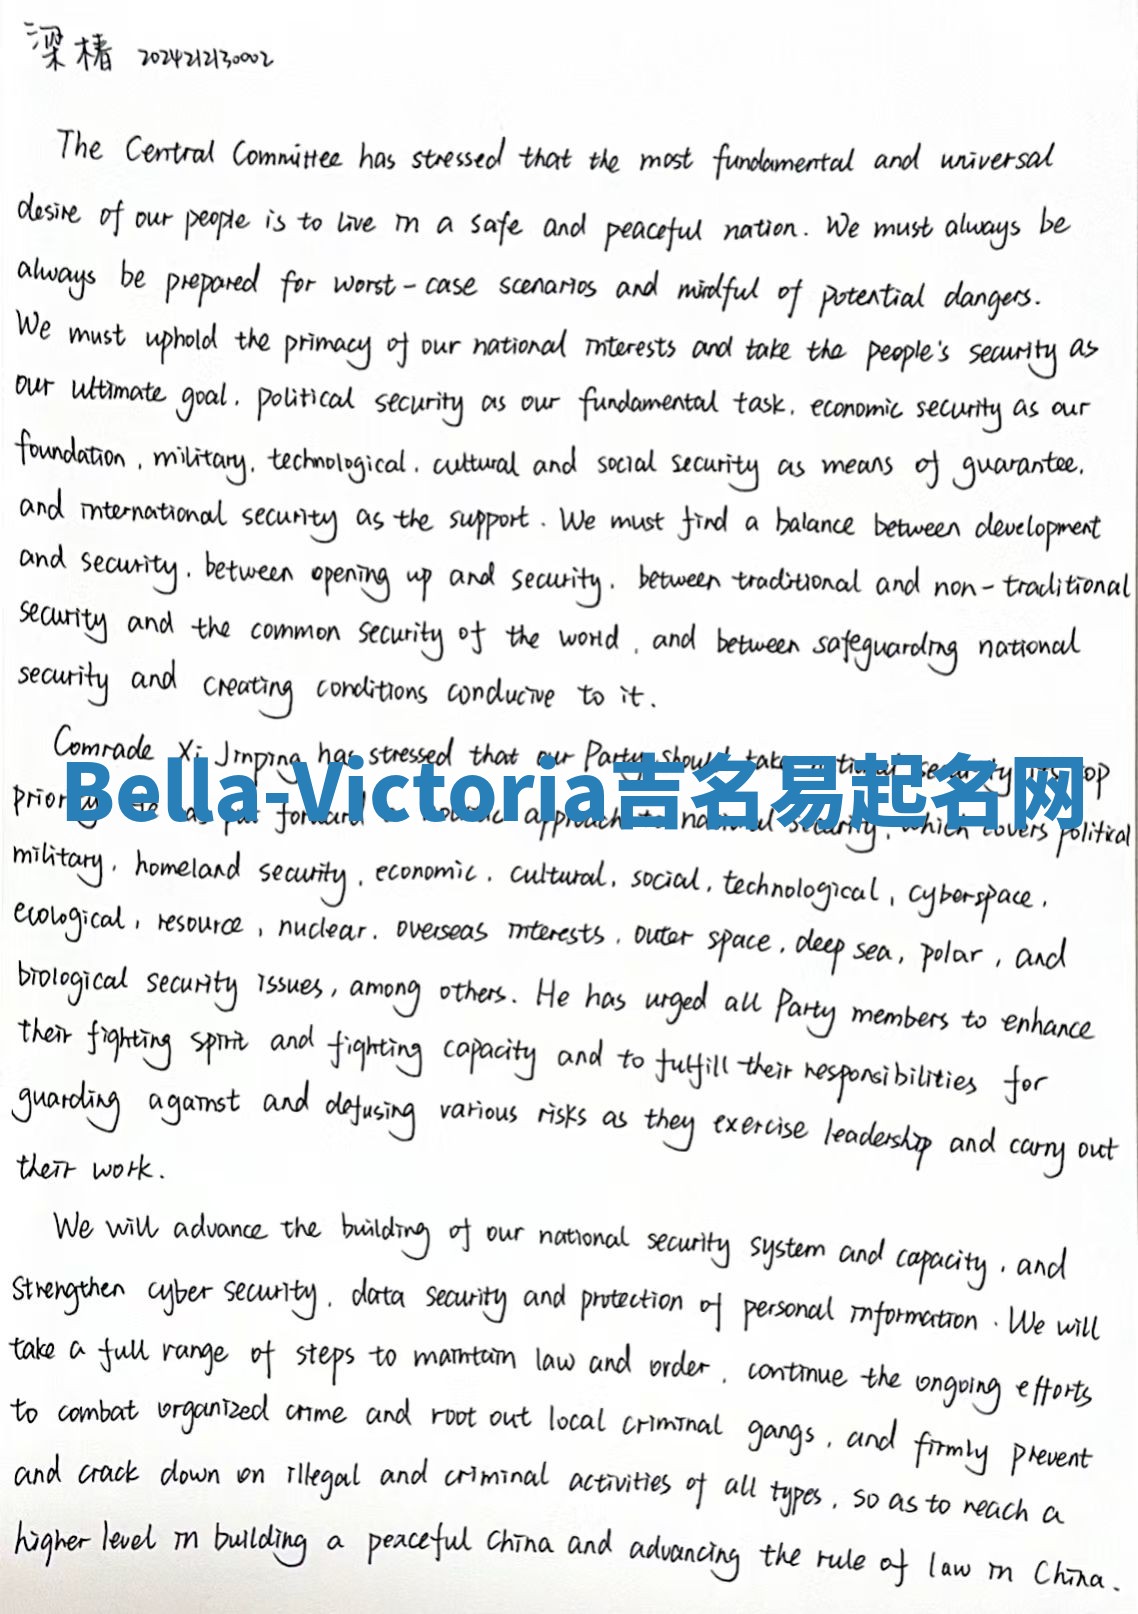 梁椿 2024212130002
The Central Committee has stressed that the most fundamental and universal
desire of our people is to live in a safe and peaceful nation. We must always be
always be prepared for worst-case scenarios and mindful of potential dangers.
We must uphold the primacy of our national interests and take the people's security as
our ultimate goal, political security as our fundamental task, economic security as our
foundation, military, technological, cultural and social security as means of guarantee,
and international security as the support. We must find a balance between development
and security, between opening up and security, between traditional and non-traditional
security and the common security of the world, and between safeguarding national
security and creating conditions conducive to it.
Comrade Xi Jinping has stressed that our Party should take national security its top
Bella-Victoria吉名易起名网
priority. approach to national security, which covers political
military, homeland security, economic, cultural, social, technological, cyberspace,
ecological, resource, nuclear, overseas interests, outer space, deep sea, polar, and
biological security issues, among others. He has urged all Party members to enhance
their fighting spirit and fighting capacity and to fulfill their responsibilities for
guarding against and defusing various risks as they exercise leadership and carry out
their work.
We will advance the building of our national security system and capacity, and
strengthen cyber security, data security and protection of personal information. We will
take a full range of steps to maintain law and order, continue the ongoing efforts
to combat organized crime and root out local criminal gangs, and firmly prevent
and crack down on illegal and criminal activities of all types, so as to reach a
higher level in building a peaceful China and advancing the rule of law in China.